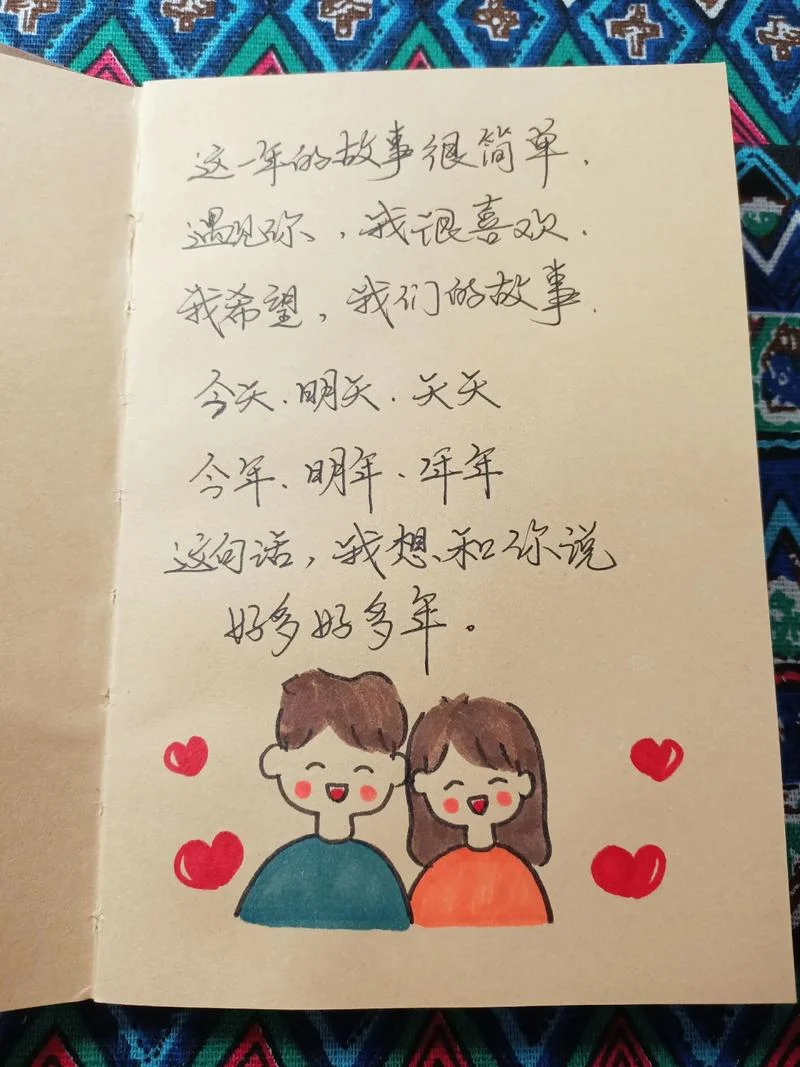 这一年的故事很简单.
遇见你,我很喜欢.
我希望,我们的故事.
今天.明天.天天
今年.明年.年年
这句话,我想和你说
好多好多年。